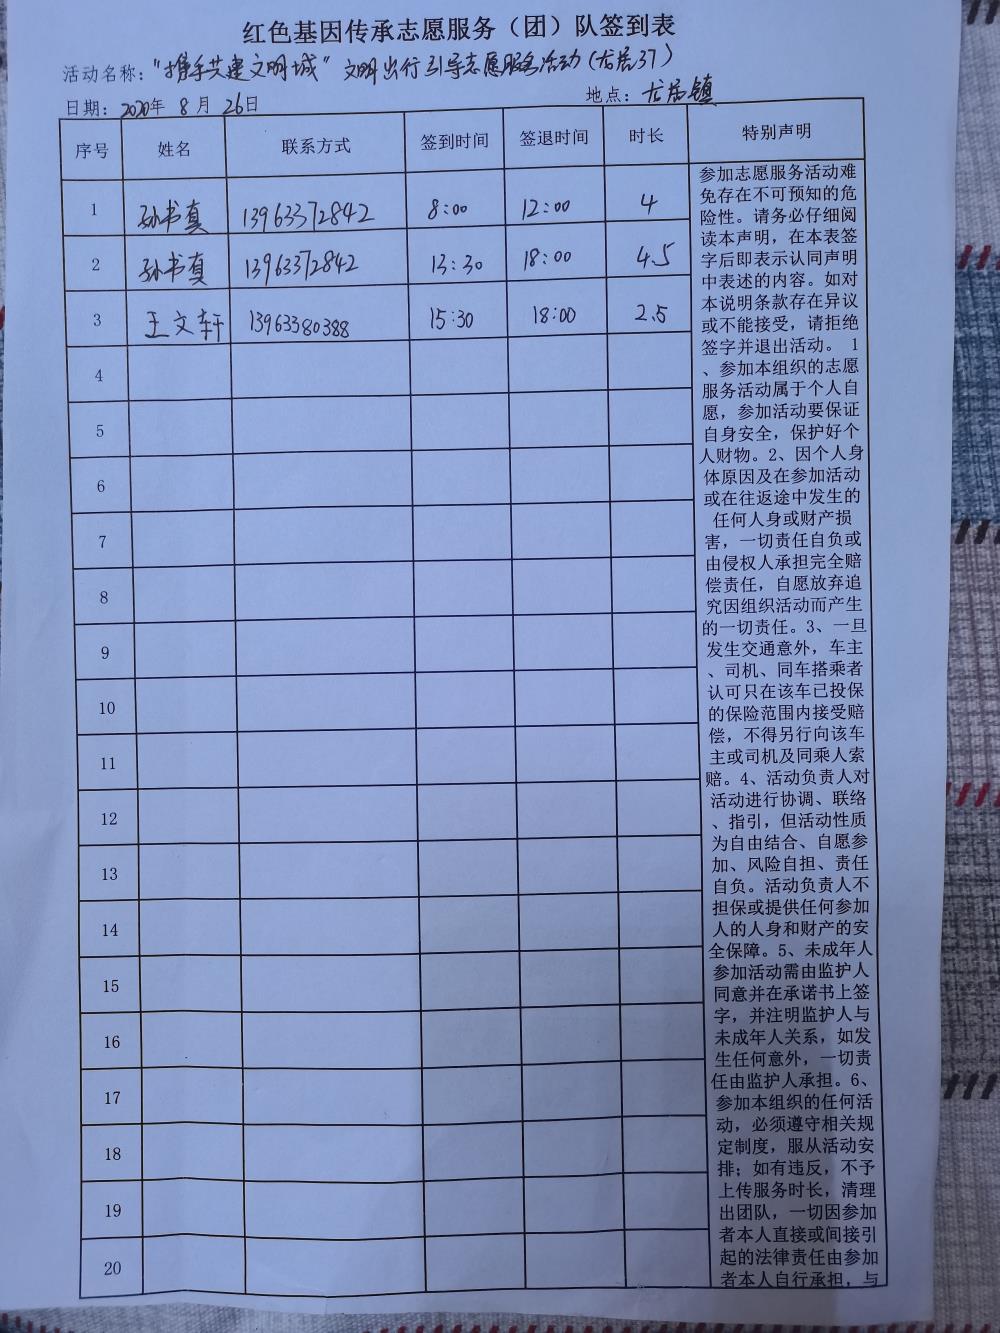 红色基因传承志愿服务（团）队签到表
活动名称：“携手共建文明城”文明出行引导志愿服务活动（尤居37）
日期：2020年 8月 26日
地点：尤居镇
序号 姓名 联系方式 签到时间 签退时间 时长 特别声明
1 孙书真 13963372842 8:00 12:00 4
2 孙书真 13963372842 13:30 18:00 4.5
3 王文轩 13963380388 15:30 18:00 2.5
4
5
6
7
8
9
10
11
12
13
14
15
16
17
18
19
20
参加志愿服务活动难
免存在不可预知的危
险性。请务必仔细阅
读本声明，在本表签
字后即表示认同声明
中表述的内容。如对
本说明条款存在异议
或不能接受，请拒绝
签字并退出活动。 1
、参加本组织的志愿
服务活动属于个人自
愿，参加活动要保证
自身安全，保护好个
人财物。2、因个人身
体原因及在参加活动
或在往返途中发生的
任何人身或财产损
害，一切责任自负或
由侵权人承担完全赔
偿责任，自愿放弃追
究因组织活动而产生
的一切责任。3、一旦
发生交通意外，车主
、司机、同车搭乘者
认可只在该车已投保
的保险范围内接受赔
偿，不得另行向该车
主或司机及同乘人索
赔。4、活动负责人对
活动进行协调、联络
、指引，但活动性质
为自由结合、自愿参
加、风险自担、责任
自负。活动负责人不
担保或提供任何参加
人的人身和财产的安
全保障。5、未成年人
参加活动需由监护人
同意并在承诺书上签
字，并注明监护人与
未成年人关系，如发
生任何意外，一切责
任由监护人承担。6、
参加本组织的任何活
动，必须遵守相关规
定制度，服从活动安
排；如有违反，不予
上传服务时长，清理
出团队，一切因参加
者本人直接或间接引
起的法律责任由参加
者本人自行承担，与